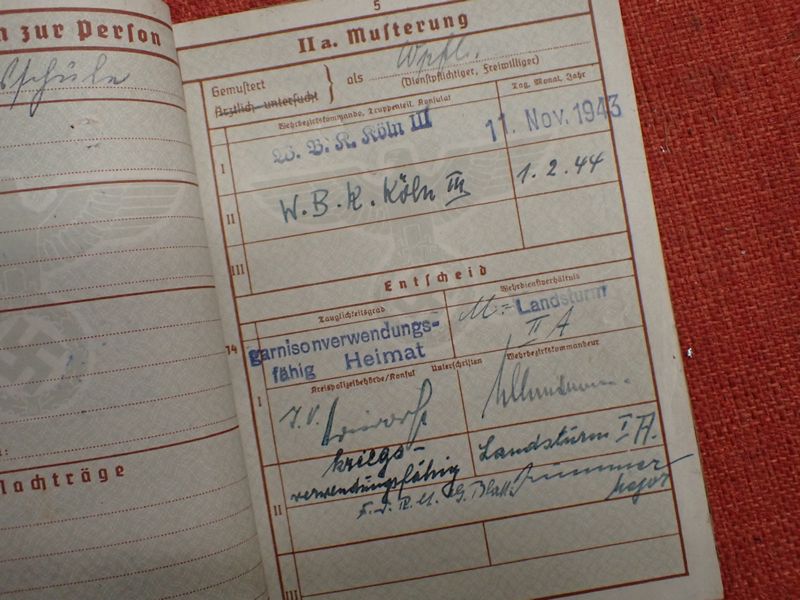 n zur Person
schule
Nachträge
5
IIa. Musterung
Gemustert
Ärztlich untersucht
als Wpfl.
(Dienstpflichtiger, Freiwilliger)
Wehrbezirkskommando, Truppenteil, Konsulat
Tag, Monat, Jahr
I
W. B. K. Köln III
11. Nov. 1943
II
W. B. K. Köln III
1. 2. 44
III
Entscheid
Tauglichkeitsgrad
Wehrdienstverhältnis
14
garnisonverwendungs-
fähig Heimat
Landsturm
II A
Kreispolizeibehörde/Konsul
Unterschriften
Wehrbezirkskommandeur
I
I.V.
II
kriegs-
verwendungsfähig
Landsturm I A.
Major
III